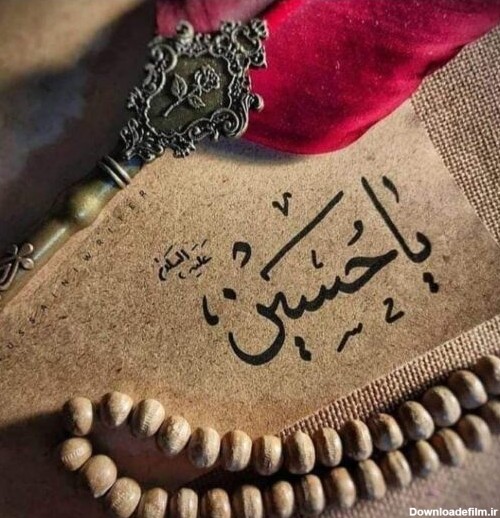 یا حسین
علیه السلام
HUSSAINIWRITER
Downloadefilm.ir